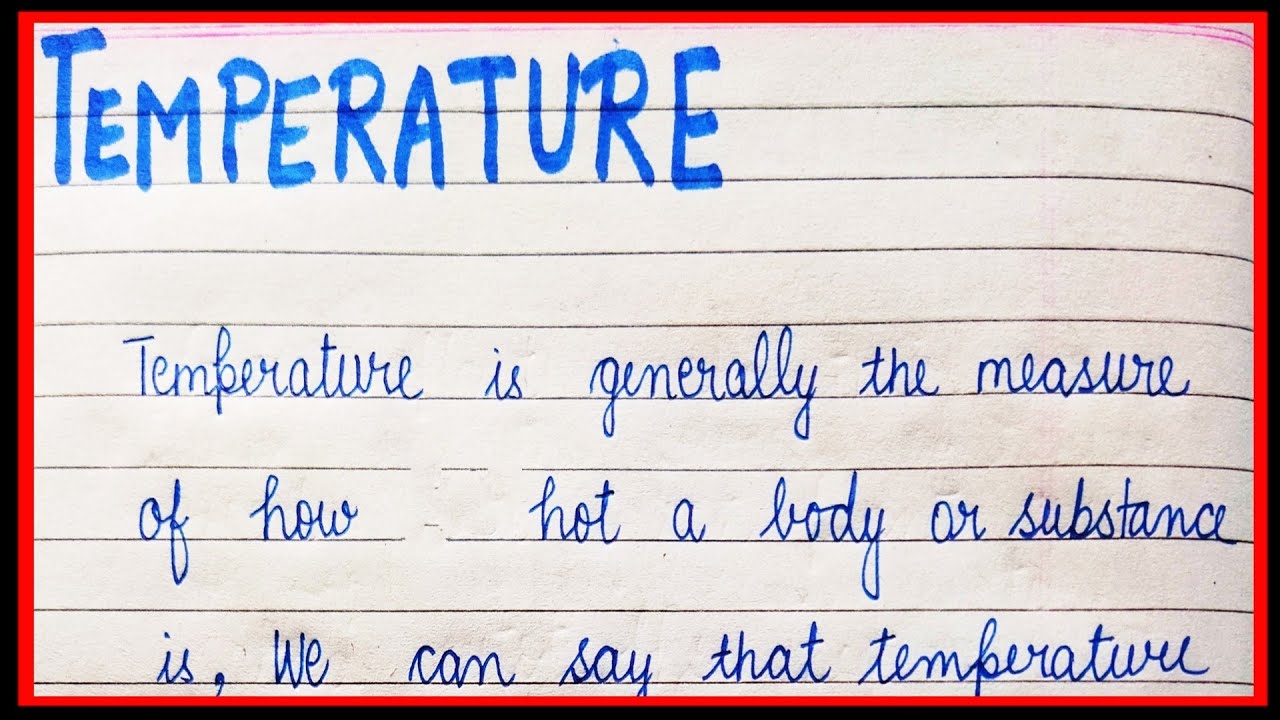 TEMPERATURE
Temperature is generally the measure
of how hot a body or substance
is, We can say that temperature